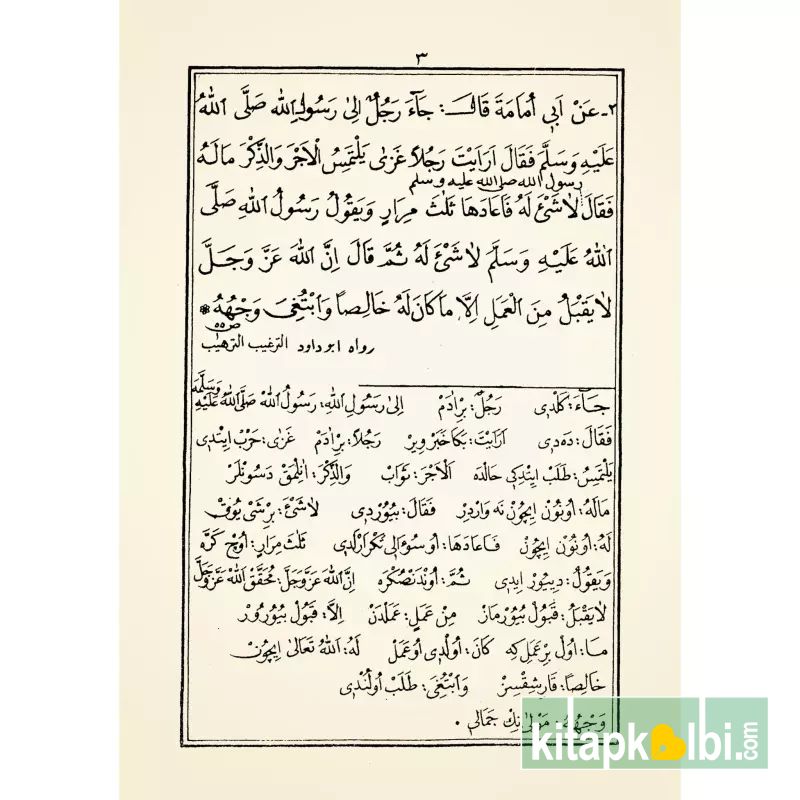 ٣
٢ـ عَنْ اَبِى اُمَامَةَ قَالَ: جَآءَ رَجُلٌ اِلىٰ رَسُولِ اللهِ صَلَّى اللهُ
عَلَيْهِ وَسَلَّمَ فَقَالَ اَرَاَيْتَ رَجُلاً غَزٰى يَلْتَمِسُ الْاَجْرَ وَالذِّكْرَ مَالَهُ
رسول الله صلى الله عليه وسلم
فَقَالَ لَا شَئْ لَهُ فَاَعَادَهَا ثَلٰثَ مِرَارٍ وَيَقُولُ رَسُولُ اللهِ صَلَّى
اللهُ عَلَيْهِ وَسَلَّمَ لَا شَئْ لَهُ ثُمَّ قَالَ اِنَّ اللهَ عَزَّ وَجَلَّ
لَا يَقْبَلُ مِنَ الْعَمَلِ اِلَّا مَا كَانَ لَهُ خَالِصاً وَابْتُغِىَ وَجْهُهُ *
رواه ابو داود الترغيب الترهيب ص ٥٥
جَآءَ: كَلْدِى رَجُلٌ: بِرْ اٰدَمْ اِلىٰ رَسُولِ اللهِ: رَسُولُ اللهْ صَلَّى اللهُ عَلَيْهِ وَسَلَّمَه
فَقَالَ: دَه دِى اَرَاَيْتَ: بَكَا خَبَرْ وِيرْ رَجُلاً: بِرْ اٰدَمْ غَزٰى: حَرْبْ اِيتْدِى
يَلْتَمِسُ: طَلَبْ اِيتْدِكِى حَالْدَه اَلْاَجْرَ: ثَوَابْ وَالذِّكْرَ: اٰكِلْمَقْ دَسُونْلَرْ
مَالَهُ: اُونُوْن اِيچُونْ نَه وَارْدِرْ فَقَالَ: بُيُورْدِى لَا شَئْ: بِرْ شَىْ يُوقْ
لَهُ: اُونُوْن اِيچُونْ فَاَعَادَهَا: اُو سُؤَالِى تَكْرَارْلَدِى ثَلٰثَ مِرَارٍ: اُوچْ كَرَّه
وَيَقُولُ: دِييُورْ اِيدِى ثُمَّ: اُونْدَنْصُكْرَه اِنَّ اللهَ عَزَّ وَجَلَّ: مُحَقَّقْ اللهْ عَزَّ وَجَلَّ
لَا يَقْبَلُ: قَبُولْ بُيُورْمَازْ مِنْ عَمَلٍ: عَمَلْدَنْ اِلَّا: قَبُولْ بُيُورُورْ
مَا: اُولْ بِرْ عَمَلِ كِه كَانَ: اُولْدِى اُو عَمَلْ لَهُ: اَللهُ تَعَالىٰ اِيچُونْ
خَالِصاً: قَارِشِقْسِزْ وَابْتُغِىَ: طَلَبْ اُولُنْدِى
وَجْهُهُ: مَوْلٰى نِكْ جَمَالِى .
kitapkalbi.com